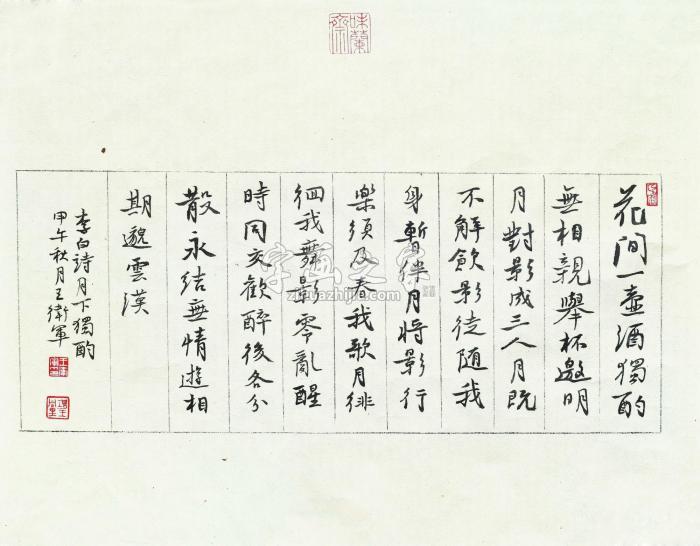 味蘭齋
花間一壺酒獨酌
無相親舉杯邀明
月對影成三人月既
不解飲影徒隨我
身暫伴月將影行
樂須及春我歌月徘
徊我舞影零亂醒
時同交歡醉後各分
散永結無情遊相
期邈雲漢
李白詩月下獨酌
甲午秋月王衛軍
字画之家
zihuazhijia.com